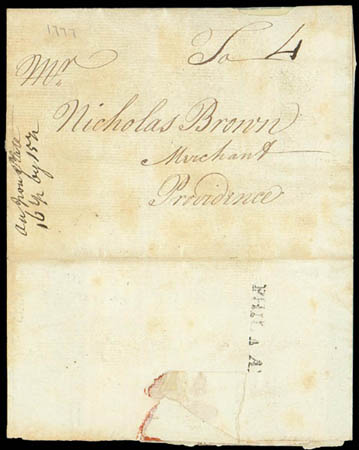 1777
To 4
Mr.
Nicholas Brown
Merchant
Providence
an Iron plate
16 ½ by 15 ½
PHILA